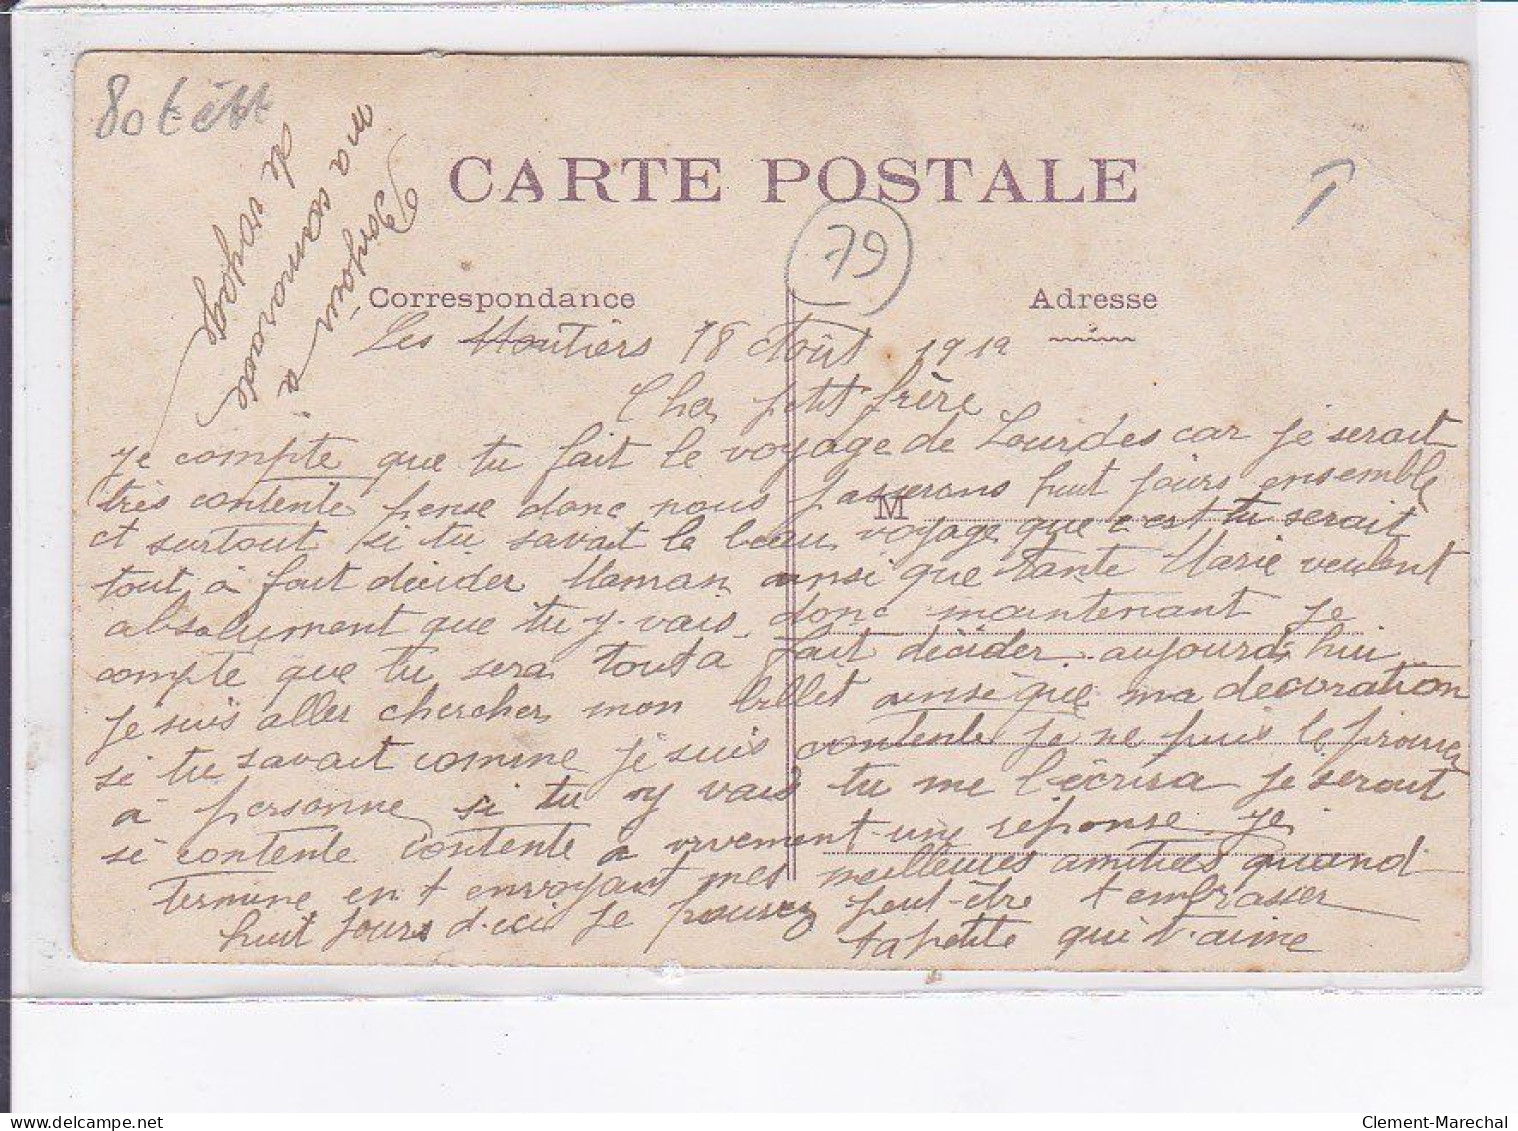 80 t
Bonjour à
ma camarade
de voyage
CARTE POSTALE
79
Correspondance
Adresse
Les Moutiers 18 Août 1912
Cher petit frère
je compte que tu fait le voyage de Lourdes car je serait
très contente pense donc nous passerons huit jours ensemble
M
et surtout si tu savait le beau voyage que c'est tu serait
tout à fait décider Maman ainsi que tante Marie veulent
absolument que tu y vais donc maintenant je
compte que tu sera tout a fait décider aujourd'hui
je suis aller chercher mon billet ainsi que ma decoration
si tu savait comme je suis contente je ne puis le prouver
à personne si tu y vais tu me l'écrira je serait
si contente contente à vivement une réponse je
termine en t envoyant mes meilleures amitiés quand
huit jours d'ici je pourrez peut-être t embrasser
ta petite qui t'aime
Clement-Marechal